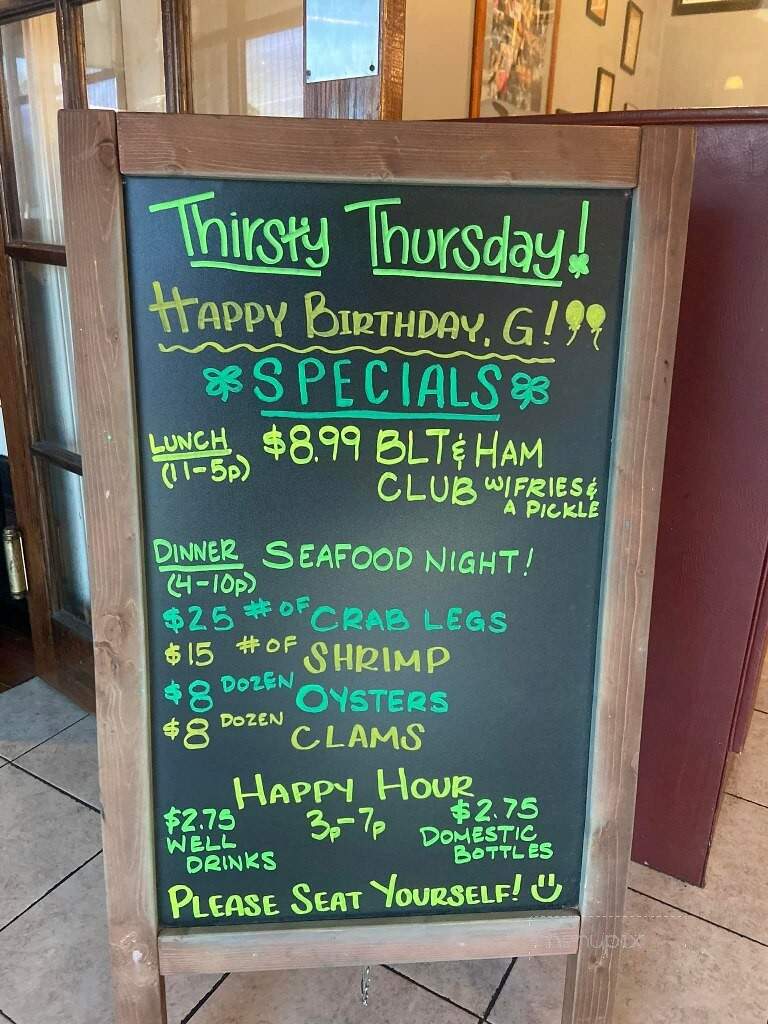 Thirsty Thursday!
Happy Birthday, G!
SPECIALS
LUNCH $8.99 BLT & HAM
(11-5p) CLUB W/FRIES &
A PICKLE
DINNER SEAFOOD NIGHT!
(4-10p)
$25 # OF CRAB LEGS
$15 # OF SHRIMP
$8 DOZEN OYSTERS
$8 DOZEN CLAMS
HAPPY HOUR
$2.75 3p-7p $2.75
WELL DOMESTIC
DRINKS BOTTLES
PLEASE SEAT YOURSELF!
menupix